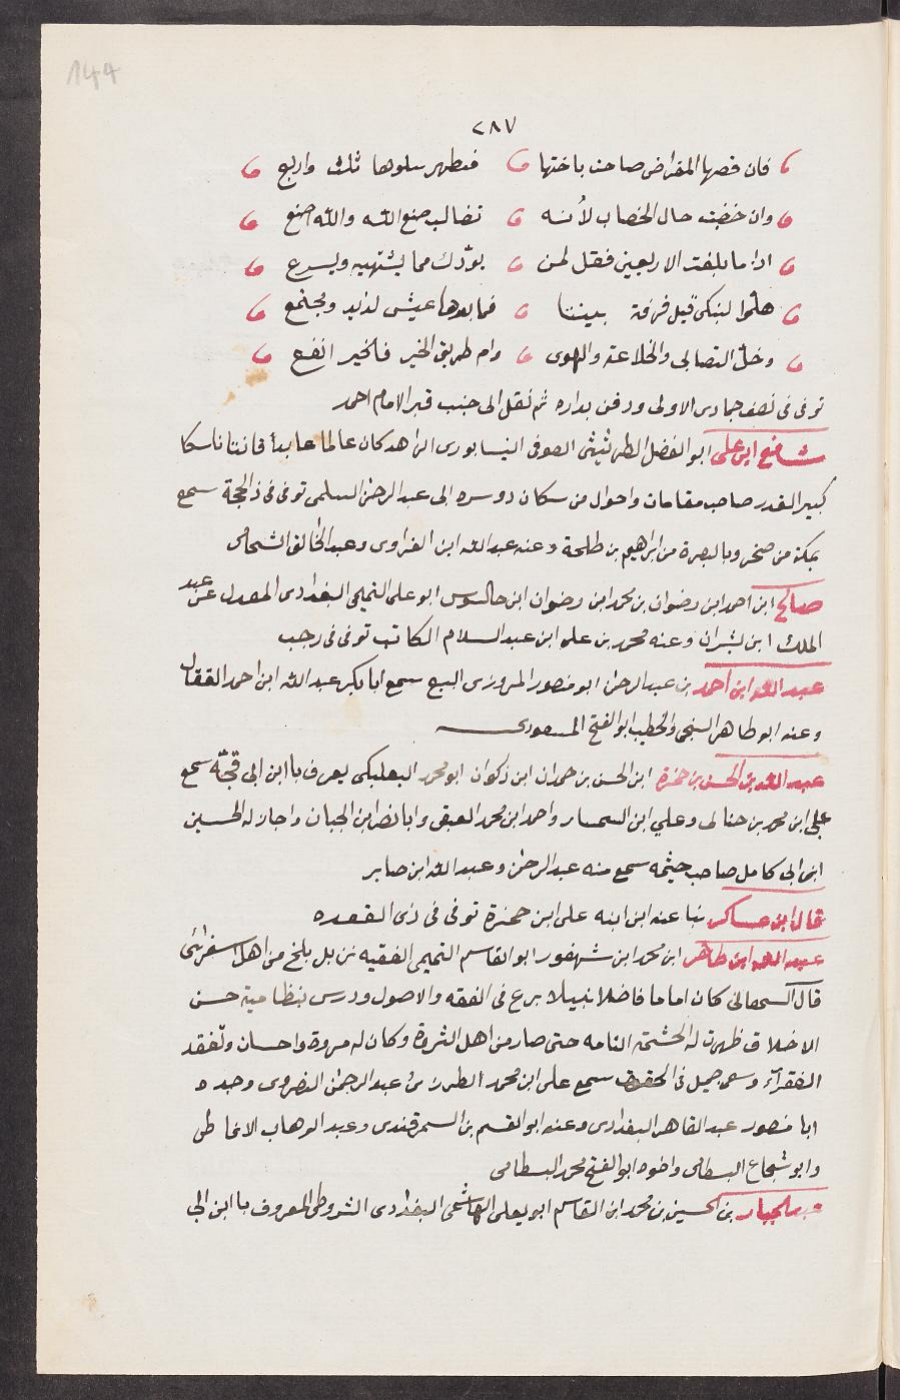 144
٢٨٧
فان قصها المقراض صاحت باختها فتطهر سلوها ثلث واربع
وان خضبت حال الخضاب لأنه تغالب صنع الله والله اصنع
اذا ما بلغت الاربعين فقل لمن يودك مما يشتهيه ويسرع
هلموا لنبكى قبل فرقة بيننا فما بعدها عيش لذيذ ومجتمع
وخل التصابى والخلاعة والهوى وام طريق الخير فالخير انفع
توفى فى نصف جمادى الاولى ودفن بداره ثم نقل الى جنب قبر الامام احمد
شافع ابن على ابو الفضل الطريثيثى الصوفى النيسابورى الزاهد كان عالما عابدا قانتا ناسكا
كبير القدر صاحب مقامات واحوال من سكان دوسره الى عبد الرحمن السلمى توفى فى ذ الحجة سمع
بمكة من صخر وبالبصرة من ابراهيم بن طلحة وعنه عبد الله ابن الفراوى وعبد الخالق الشحامى
صالح ابن احمد ابن رضوان بن محمد ابن رضوان ابن جالنوس ابو على التميمى البغدادى المعدل عن عبد
الملك ابن بشران وعنه محمد بن على ابن عبد السلام الكاتب توفى فى رجب
عبد الله ابن احمد بن عبد الرحمن ابو منصور المروزى البيع سمع ابا بكر عبد الله ابن احمد القفال
وعنه ابو طاهر السنجى والخطيب ابو الفتح المسعودى
عبد الله بن الحسن بن حمزة ابن الحسن بن حمدان ابن ذكوان ابو محمد البعلبكى يعرف با ابن ابى فجة سمع
على ابن محمد بن حنالى وعلي ابن السمسار واحمد ابن محمد العتيقى وابا نصر ابن الجبان واجاز له الحسين
ابن ابى كامل صاحب خيثمه سمع منه عبد الرحمن وعبد الله ابن صابر
قال ابن عساكر نبا عنه ابن ابنه على ابن حمزة توفى فى ذى القعده
عبد الله ابن طاهر ابن محمد ابن شهفور ابو القاسم التميمى الفقيه نزيل بلخ من اهل اسفرائنى
قال السمعانى كان اماما فاضلا نبيلا برع فى الفقه والاصول ودرس بنظامية حسن
الاخلاق ظهرت له الحشمة التامه حتى صار من اهل الثروة وكان له مروة واحسان وتفقد
الفقرآء وسعى جميل فى الحقوق سمع على ابن محمد الطرزى عبد الرحمن النصروى وجده
ابا منصور عبد القاهر البغدادى وعنه ابو القسم بن السمرقندى وعبد الوهاب الانماطى
وابو شجاع البسطامى واخوه ابو الفتح محمد البسطامى
عبد الجبار بن الحسين بن محمد ابن القاسم ابو يعلى الهاشمى البغدادى الشروطى المعروف با ابن ابى